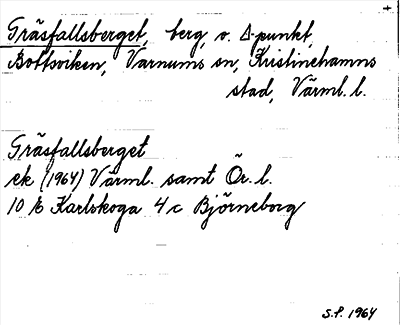 Gräsfallsberget, berg, v. Δ-punkt,
Bottsviken, Varnums sn, Kristinehamns
stad, Värml. l.
Gräsfallsberget
ek (1964) Värml. samt Ör. l.
10 E Karlskoga 4 c Björneborg
S.P. 1964